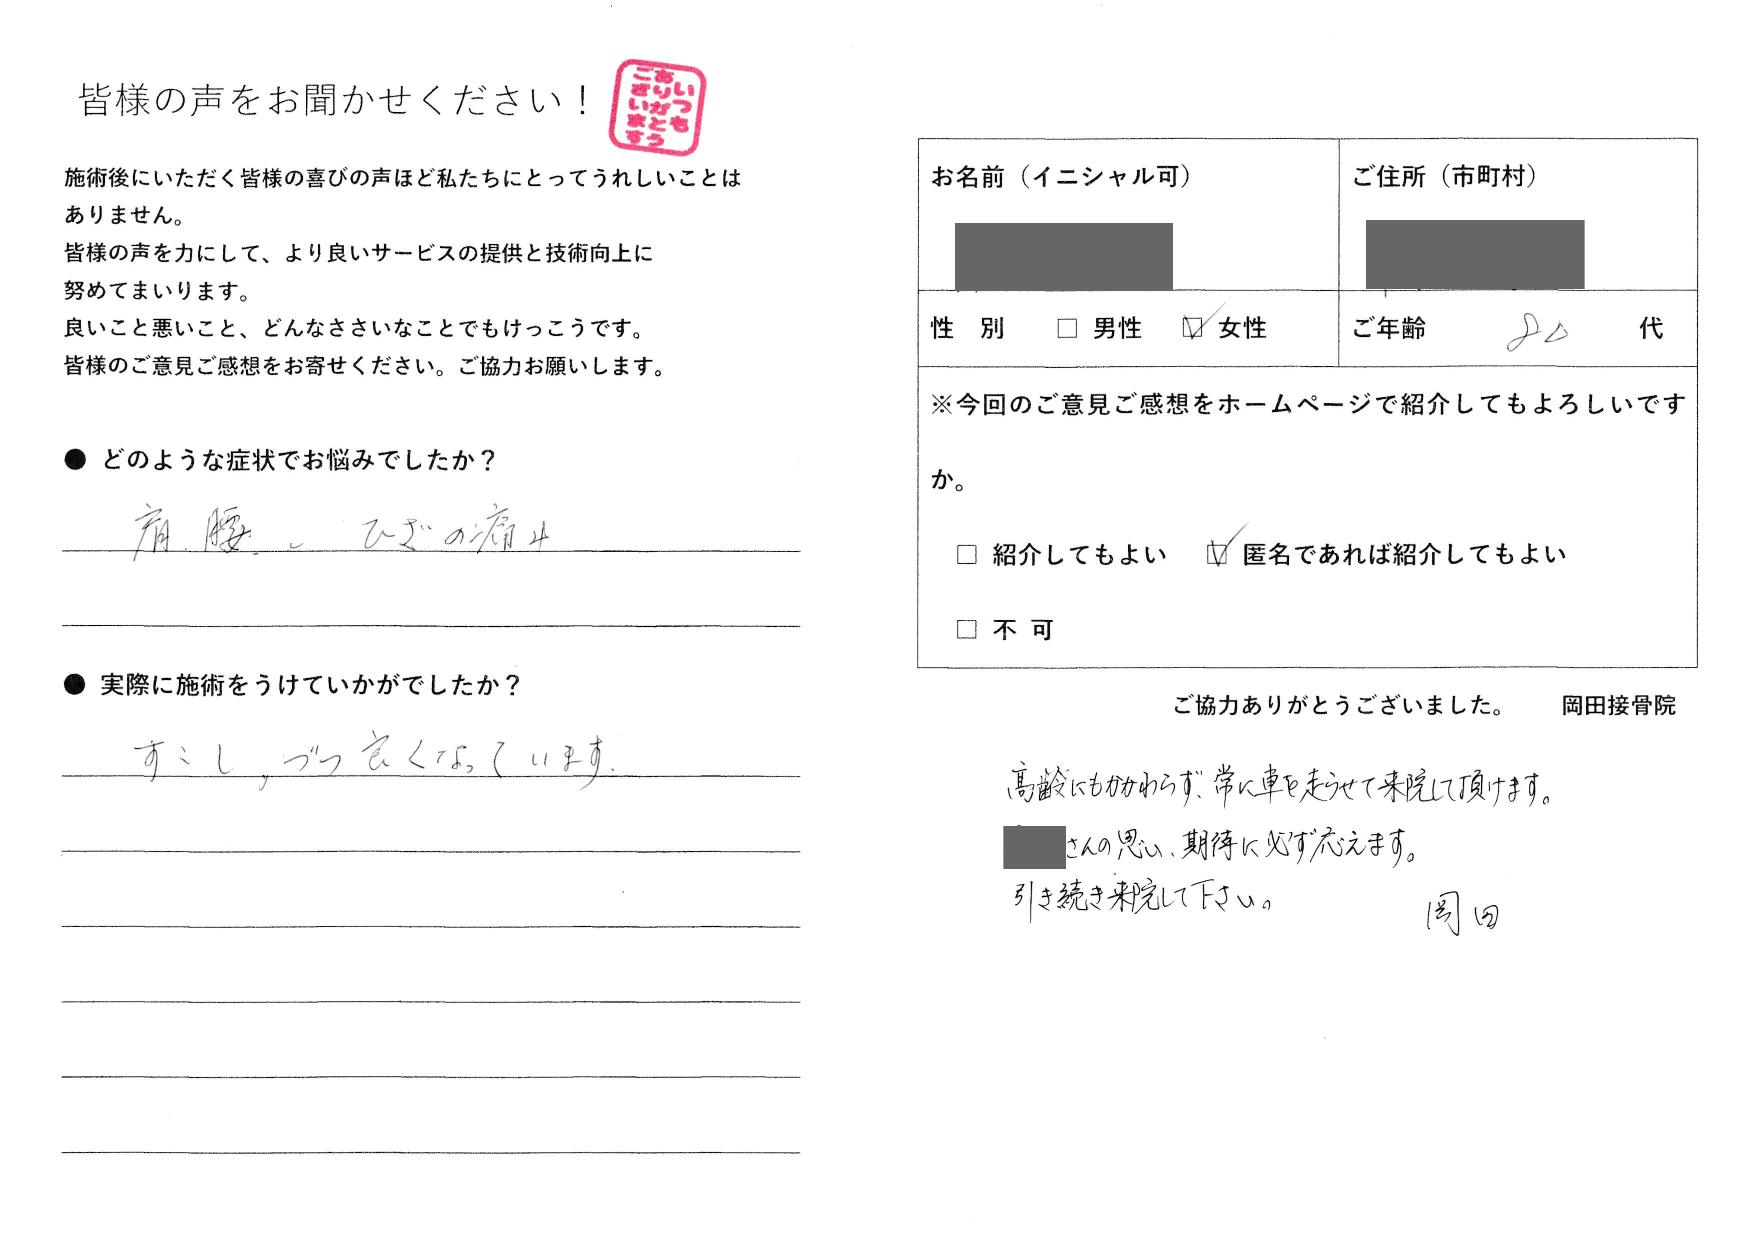 皆様の声をお聞かせください！
いつも
ありがとう
ございます
施術後にいただく皆様の喜びの声ほど私たちにとってうれしいことは
ありません。
皆様の声を力にして、より良いサービスの提供と技術向上に
努めてまいります。
良いこと悪いこと、どんなささいなことでもけっこうです。
皆様のご意見ご感想をお寄せください。ご協力お願いします。
● どのような症状でお悩みでしたか？
肩、腰、 ひざの痛み
● 実際に施術をうけていかがでしたか？
すこし、づつ良くなっています.
お名前（イニシャル可） ご住所（市町村）
性 別 □ 男性 ☑ 女性 ご年齢 80 代
※今回のご意見ご感想をホームページで紹介してもよろしいです
か。
□ 紹介してもよい ☑ 匿名であれば紹介してもよい
□ 不 可
ご協力ありがとうございました。 岡田接骨院
高齢にもかかわらず、常に車を走らせて来院して頂けます。
さんの思い、期待に必ず応えます。
引き続き来院して下さい。 岡田